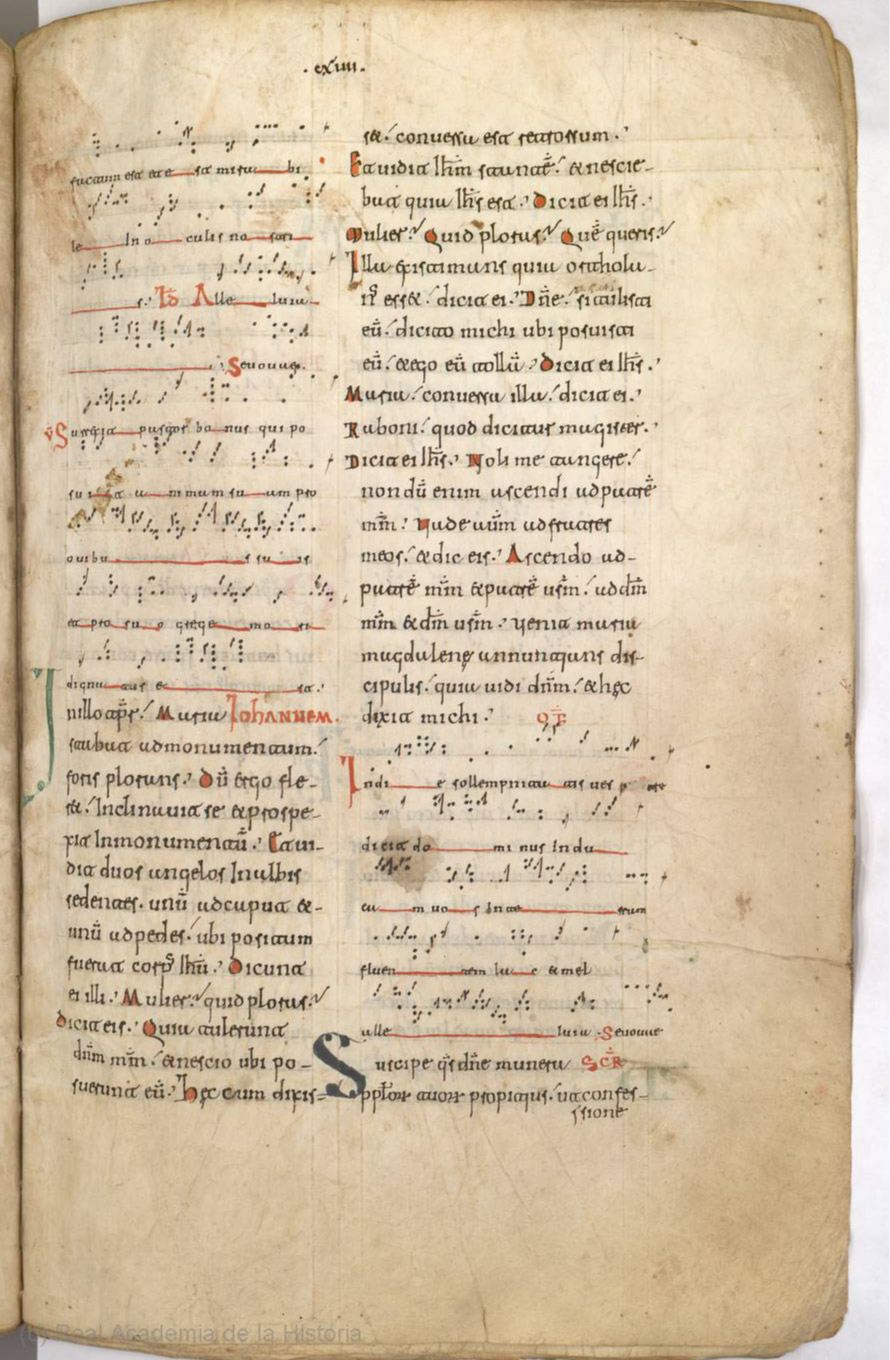 ·cxiiii·
factum est et e sta mirabi
le In o culis nostri
s· ID Alle luia
Seuouae·
V Surrexit pastor bonus qui po
suit a nimam su am pro
ouibu s su is
et pro su o grege mo ri
dignatus es t·
In illo tpr̃· Maria IOHANNEM·
stabat ad monumentum·
foris plorans· Dũ ergo fle-
ret· Inclinauit se & prospe-
xit In monumentũ· Et ui-
dit duos angelos In albis
sedentes· unũ ad caput &-
unũ ad pedes· ubi positum
fuerat corp̃ Ihũ· Dicunt
ei illi· Mulier· quid ploras·
Dicit eis· Quia tulerunt
dñm mm̃· & nescio ubi po-
suerunt eũ· Hęc cum dixis-
s&· conuersa est retrorsum·
Et uidit Ihm̃ stantẽ· & nescie-
bat quia Ihs̃ est· Dicit ei Ihs̃·
Mulier· Quid ploras· Quẽ queris·
Illa existimans quia ortola-
nꝰ ess&· dicit ei· Dñe· si tu sustulisti
eũ· dicito michi ubi posuisti
eũ· & ego eũ tollã· Dicit ei Ihs̃·
Maria· conuersa illa· dicit ei·
Raboni· quod dicitur magister·
Dicit ei Ihs̃· Noli me tangere·
nondũ enim ascendi ad patrẽ
mm̃· Uade autm̃ ad fratres
meos· & dic eis· Ascendo ad-
patrẽ mm̃ & patrẽ usm̃· ad dm̃
mm̃ & dm̃ usm̃· Uenit maria
magdalenę annuntians dis-
cipulis· quia uidi dnm̃· & hęc
dixit michi· OF
In di e sollempnita tis ues tre
dicit do mi nus Indu
cã m uo s In te rram
fluen tem la c & mel
alle luia ·Seuouae
Suscipe qs̃ dñe munera SCR
pptõꝝ tuoꝝ propitius· ut confes-
ssione
(c) Real Academia de la Historia